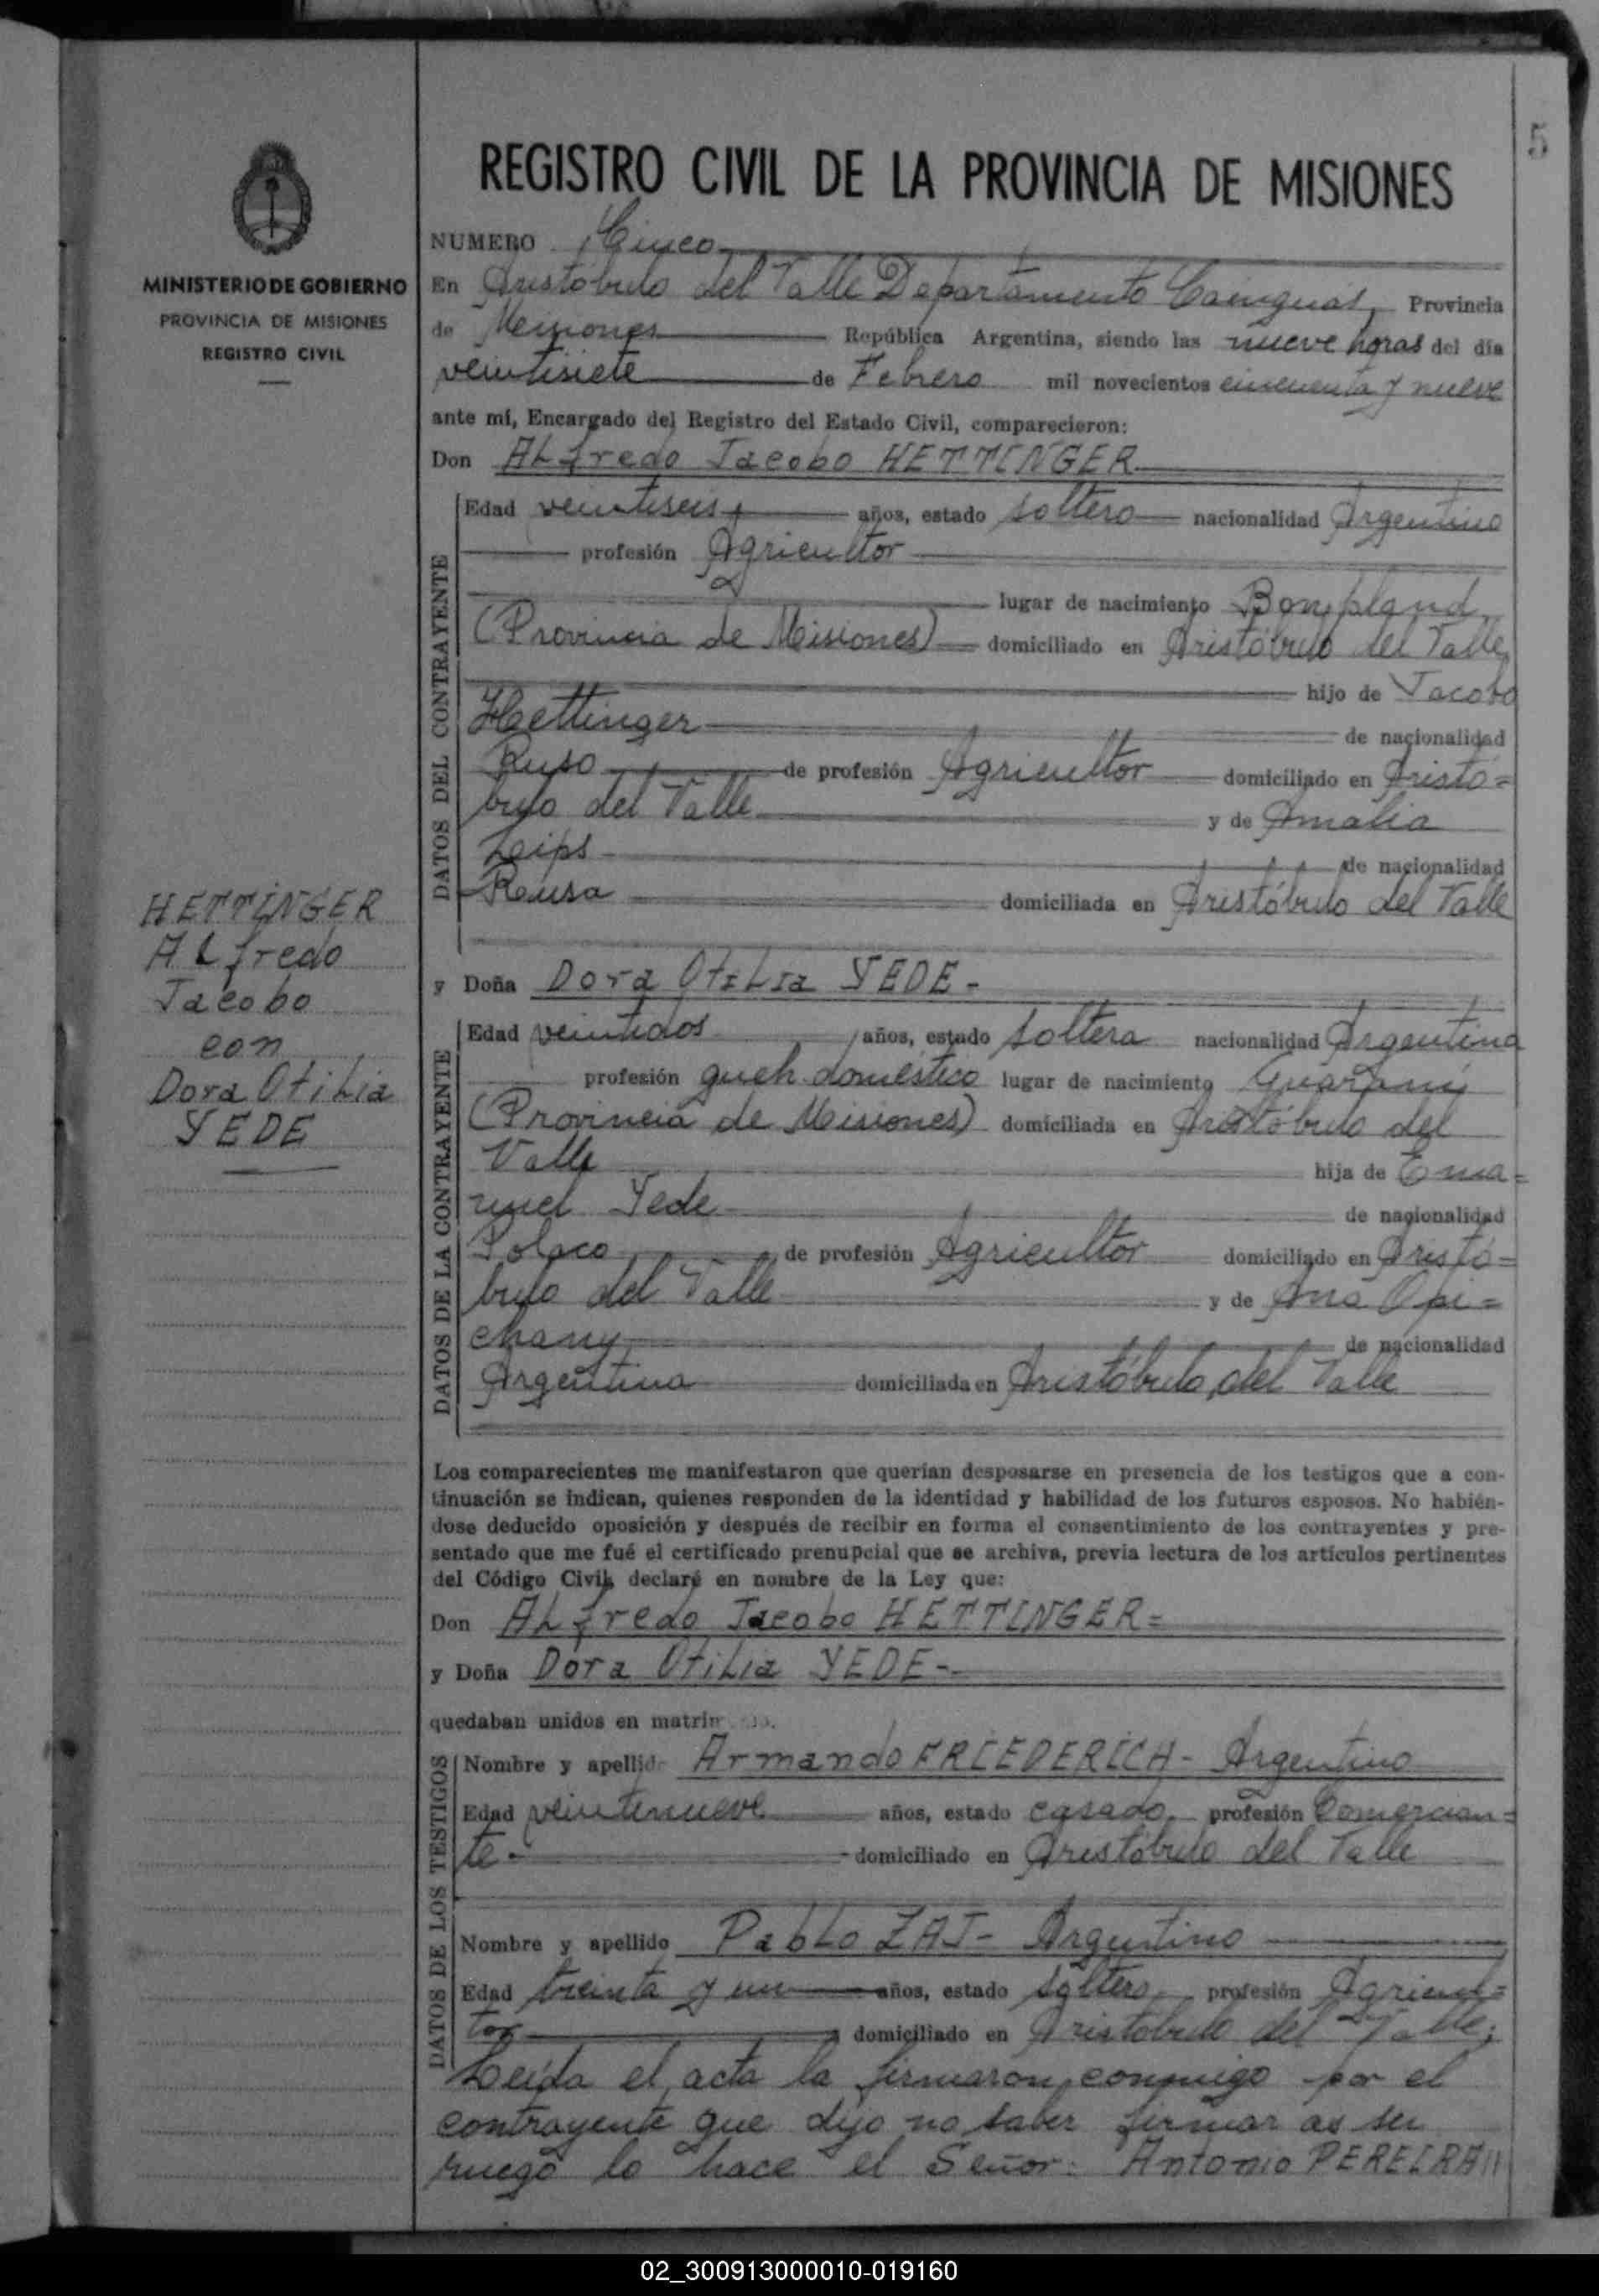 5
REGISTRO CIVIL DE LA PROVINCIA DE MISIONES
MINISTERIO DE GOBIERNO
PROVINCIA DE MISIONES
REGISTRO CIVIL
HETTINGER
ALfredo
Jacobo
con
Dora OtiLia
YEDE
NUMERO Cinco
En Aristóbulo del Valle Departamento Cainguás, Provincia
de Misiones República Argentina, siendo las nueve horas del día
veintisiete de Febrero mil novecientos cincuenta y nueve
ante mí, Encargado del Registro del Estado Civil, comparecieron:
Don ALfredo Jacobo HETTINGER
DATOS DEL CONTRAYENTE
Edad veintiseis años, estado soltero nacionalidad Argentino
profesión Agricultor
lugar de nacimiento Bompland
(Provincia de Misiones) domiciliado en Aristóbulo del Valle
hijo de Jacobo
Hettinger de nacionalidad
Ruso de profesión Agricultor domiciliado en Aristó=
bulo del Valle y de Amalia
Leips de nacionalidad
Rusa domiciliada en Aristóbulo del Valle
y Doña Dora OtiLia YEDE-
DATOS DE LA CONTRAYENTE
Edad veintidos años, estado soltera nacionalidad Argentina
profesión queh. doméstico lugar de nacimiento Guaraní
(Provincia de Misiones) domiciliada en Aristóbulo del
Valle hija de Ema=
nuel Yede de nacionalidad
Polaco de profesión Agricultor domiciliado en Aristó=
bulo del Valle y de Ana Opi=
chany de nacionalidad
Argentina domiciliada en Aristóbulo del Valle
Los comparecientes me manifestaron que querían desposarse en presencia de los testigos que a con-
tinuación se indican, quienes responden de la identidad y habilidad de los futuros esposos. No habién-
dose deducido oposición y después de recibir en forma el consentimiento de los contrayentes y pre-
sentado que me fué el certificado prenupcial que se archiva, previa lectura de los artículos pertinentes
del Código Civil, declaré en nombre de la Ley que:
Don ALfredo Jacobo HETTINGER=
y Doña Dora OtiLia YEDE-
quedaban unidos en
DATOS DE LOS TESTIGOS
Nombre y apellido Armando FRIEDERICH- Argentino
Edad veintinueve años, estado casado, profesión Comercian=
te- domiciliado en Aristóbulo del Valle
Nombre y apellido PabLo ZAJ- Argentino
Edad treinta y un años, estado soltero, profesión Agricul=
tor domiciliado en Aristóbulo del Valle;
Leída el acta la firmaron conmigo por el
contrayente que dijo no saber firmar a su
ruego lo hace el Señor: Antonio PEREIRA
02_300913000010-019160